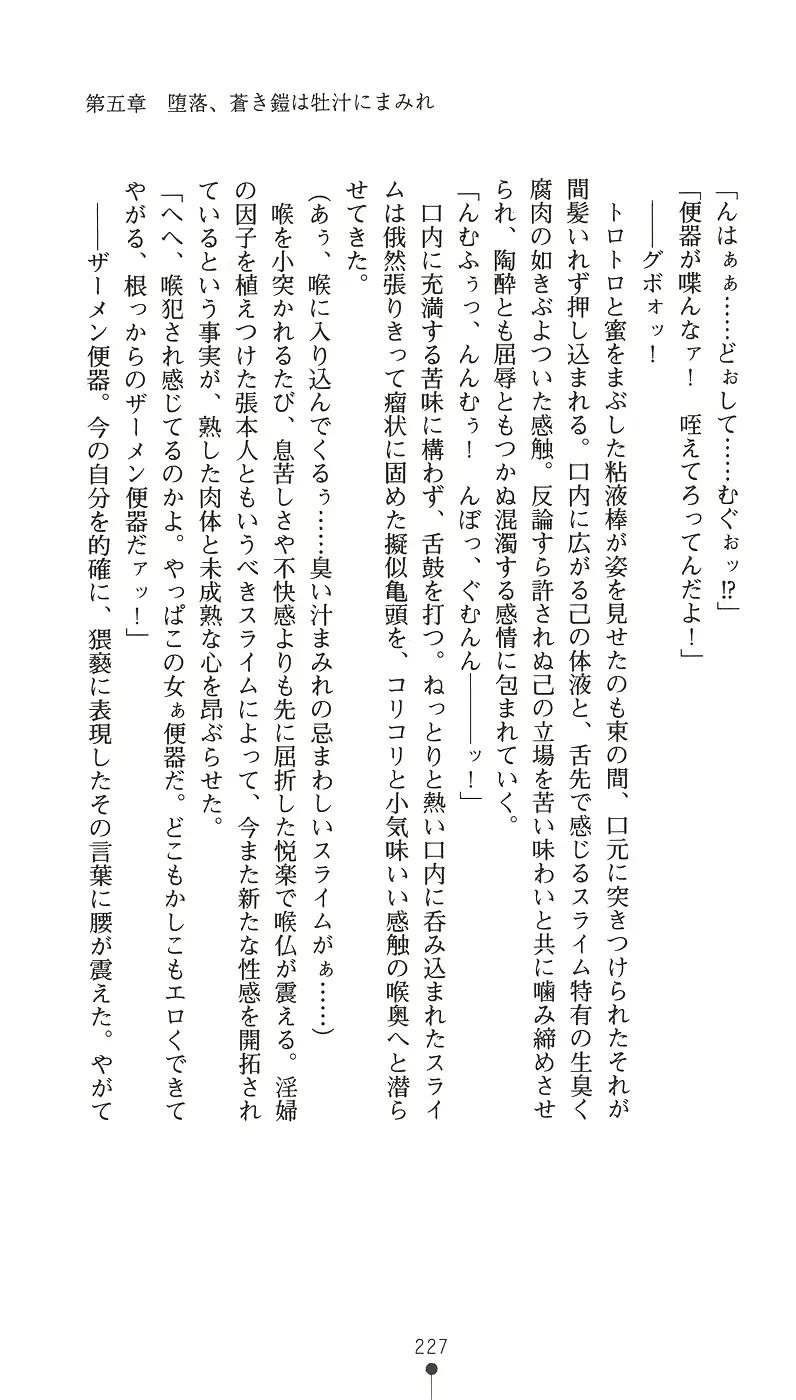 第五章　堕落、蒼き鎧は牡汁にまみれ
「んはぁぁ……どぉして……むぐぉッ⁉」
「便器が喋んなァ！　咥えてろってんだよ！」
――グボォッ！
　トロトロと蜜をまぶした粘液棒が姿を見せたのも束の間、口元に突きつけられたそれが
間髪いれず押し込まれる。口内に広がる己の体液と、舌先で感じるスライム特有の生臭く
腐肉の如きぶよついた感触。反論すら許されぬ己の立場を苦い味わいと共に噛み締めさせ
られ、陶酔とも屈辱ともつかぬ混濁する感情に包まれていく。
「んむふぅっ、んんむぅ！　んぼっ、ぐむんん――――ッ！」
　口内に充満する苦味に構わず、舌鼓を打つ。ねっとりと熱い口内に呑み込まれたスライ
ムは俄然張りきって瘤状に固めた擬似亀頭を、コリコリと小気味いい感触の喉奥へと潜ら
せてきた。
（あぅ、喉に入り込んでくるぅ……臭い汁まみれの忌まわしいスライムがぁ……）
　喉を小突かれるたび、息苦しさや不快感よりも先に屈折した悦楽で喉仏が震える。淫婦
の因子を植えつけた張本人ともいうべきスライムによって、今また新たな性感を開拓され
ているという事実が、熟した肉体と未成熟な心を昂ぶらせた。
「へへ、喉犯され感じてるのかよ。やっぱこの女ぁ便器だ。どこもかしこもエロくできて
やがる、根っからのザーメン便器だァッ！」
――ザーメン便器。今の自分を的確に、猥褻に表現したその言葉に腰が震えた。やがて
227